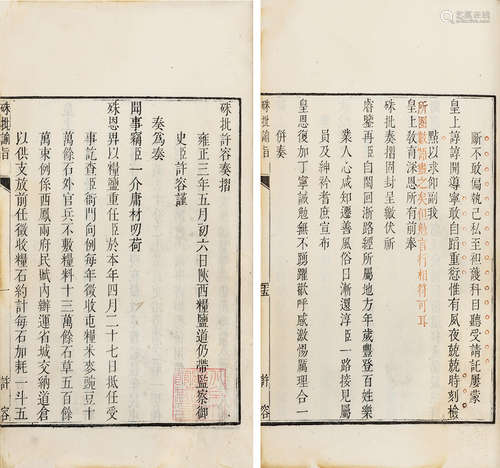 硃批許容奏摺
雍正三年五月初六日陝西糧鹽道仍帶監察御
史臣許容謹
奏爲奏
聞事竊臣一介庸材叨荷
殊恩畀以糧鹽重任臣於本年四月二十七日抵任受
事訖查臣衙門向例每年徵收屯糧米麥豌豆十
萬餘石外官兵不敷糧料十三萬餘石草五百餘
萬束例係西鳳兩府民賦內辦運省城交納道倉
以供支放前任徵收糧石約計每石加耗一斗五
硃批諭旨 一 許容
斷不敢偏執己私至袒護科目聽受請託屢蒙
皇上諄諄開導寧敢自蹈重愆惟有夙夜兢兢時刻檢
點以求仰副我
數語盡之矣但勉言行相符可耳
皇上敎育深恩所有前奉
硃批奏摺固封呈繳伏祈
睿鑒再臣自閩回浙路經所屬地方年歲豐登百姓樂
業人心咸知遷善風俗日漸還淳臣一路接見屬
員及紳衿耆庶宣布
皇恩復加丁寧誡勉無不踴躍歡呼感激惕厲理合一
併奏
硃批諭旨 許容